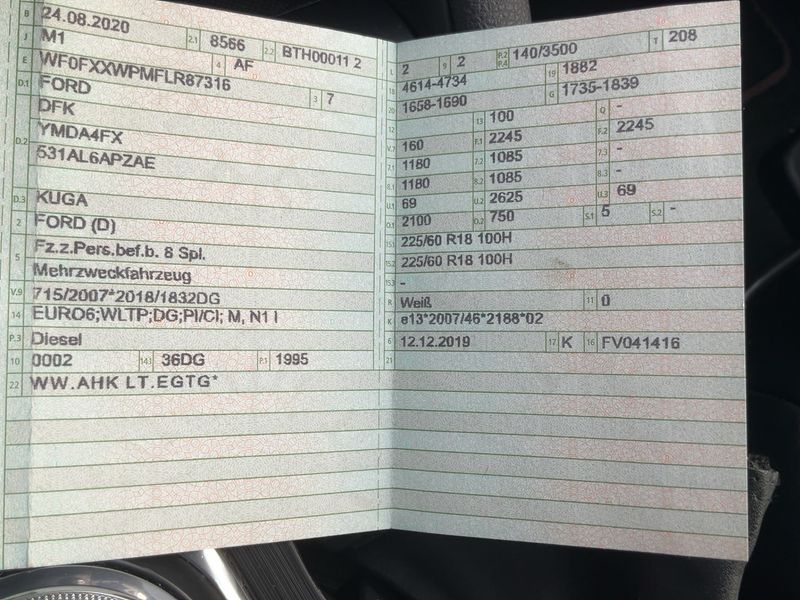 B 24.08.2020
J M1 2.1 8566 2.2 BTH00011 2
E WF0FXXWPMFLR87316 4 AF
D.1 FORD 3 7
DFK
D.2 YMDA4FX
531AL6APZAE
D.3 KUGA
2 FORD (D)
5 Fz.z.Pers.bef.b. 8 Spl.
Mehrzweckfahrzeug
V.9 715/2007*2018/1832DG
14 EURO6;WLTP;DG;PI/CI; M, N1 I
P.3 Diesel
10 0002 14.1 36DG P.1 1995
22 WW.AHK LT.EGTG*
L 2 9 2 P.2 P.4 140/3500 T 208
18 4614-4734 19 1882
20 1658-1690 G 1735-1839
12 13 100 Q -
V.7 160 F.1 2245 F.2 2245
7.1 1180 7.2 1085 7.3 -
8.1 1180 8.2 1085 8.3 -
U.1 69 U.2 2625 U.3 69
O.1 2100 O.2 750 S.1 5 S.2 -
15.1 225/60 R18 100H
15.2 225/60 R18 100H
15.3 -
R Weiß 11 0
K e13*2007/46*2188*02
6 12.12.2019 17 K 16 FV041416
21